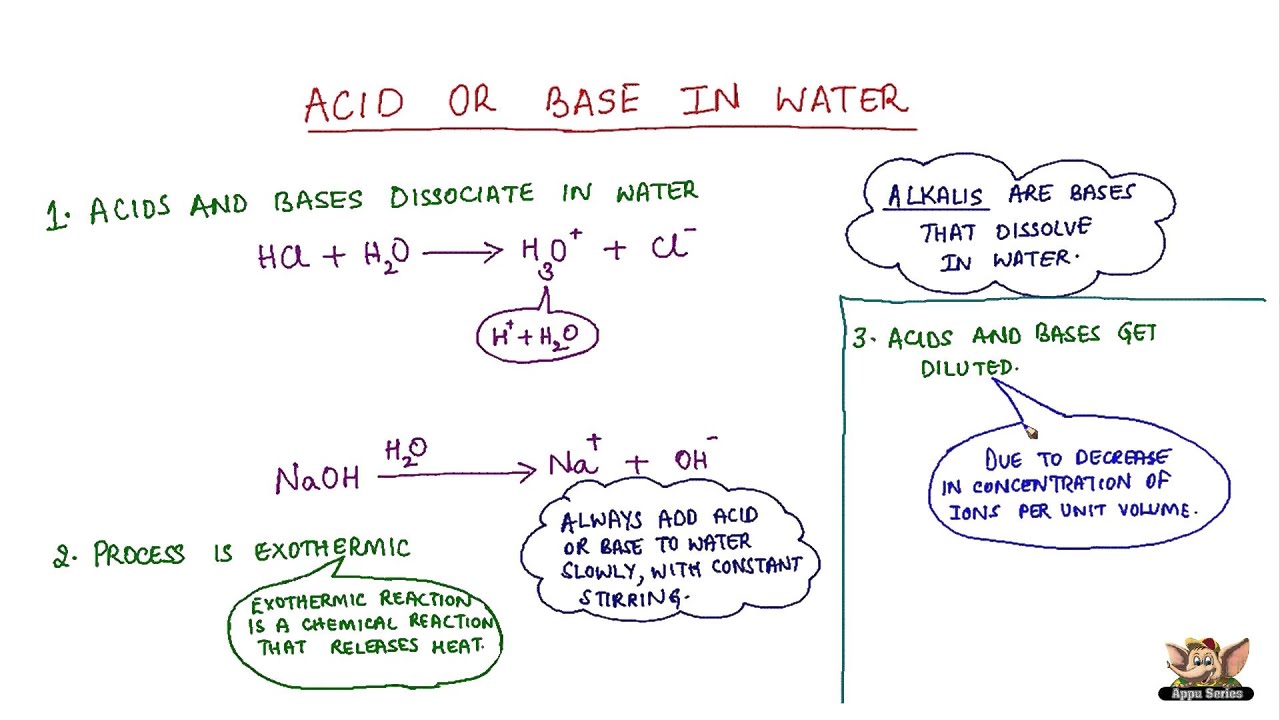 ACID OR BASE IN WATER
1. ACIDS AND BASES DISSOCIATE IN WATER
HCl + H₂O ⟶ H₃O⁺ + Cl⁻
H⁺ + H₂O
NaOH ⟶ Na⁺ + OH⁻
H₂O
ALWAYS ADD ACID
OR BASE TO WATER
SLOWLY, WITH CONSTANT
STIRRING.
2. PROCESS IS EXOTHERMIC
EXOTHERMIC REACTION
IS A CHEMICAL REACTION
THAT RELEASES HEAT.
ALKALIS ARE BASES
THAT DISSOLVE
IN WATER.
3. ACIDS AND BASES GET
DILUTED.
DUE TO DECREASE
IN CONCENTRATION OF
IONS PER UNIT VOLUME.
Appu Series